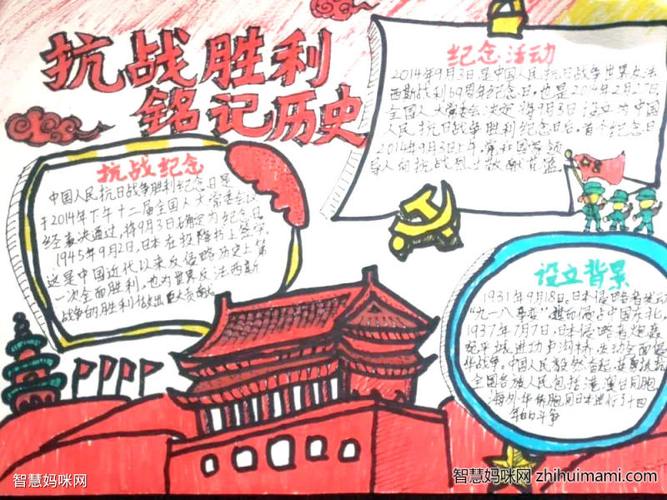 抗战胜利
铭记历史
纪念活动
2014年9月3日是中国人民抗日战争世界反法
西斯战利69周年纪念日,也是2014年2月27日
全国人大常委会决定将9月3日设立为中国
人民抗日战争胜利纪念日后,首个纪念日
2014年9月3日上午,
导人向抗战烈士敬献花篮
抗战纪念
中国人民抗日战争胜利纪念日是
于2014年下午十二届全国人大常委会
经表决通过,将9月3日确定为纪念日
1945年9月2日,日本在投降书上签字
这是中国近代以来反侵略历史上第
一次全面胜利,也为世界反法西斯
战争的胜利做出巨大贡献
设立背景
1931年9月18日,日本侵略者发动
"九一八事变",占中国东北,
1937年7月7日,日本侵略者炮轰
宛平城进攻卢沟桥,发动全面侵
华战争。中国人民毅然奋起,
全国各族人民包括港澳台同胞
海外华侨胞同日本进行了十四
年的斗争
智慧妈咪网
智慧妈咪网 zhihuimami.com